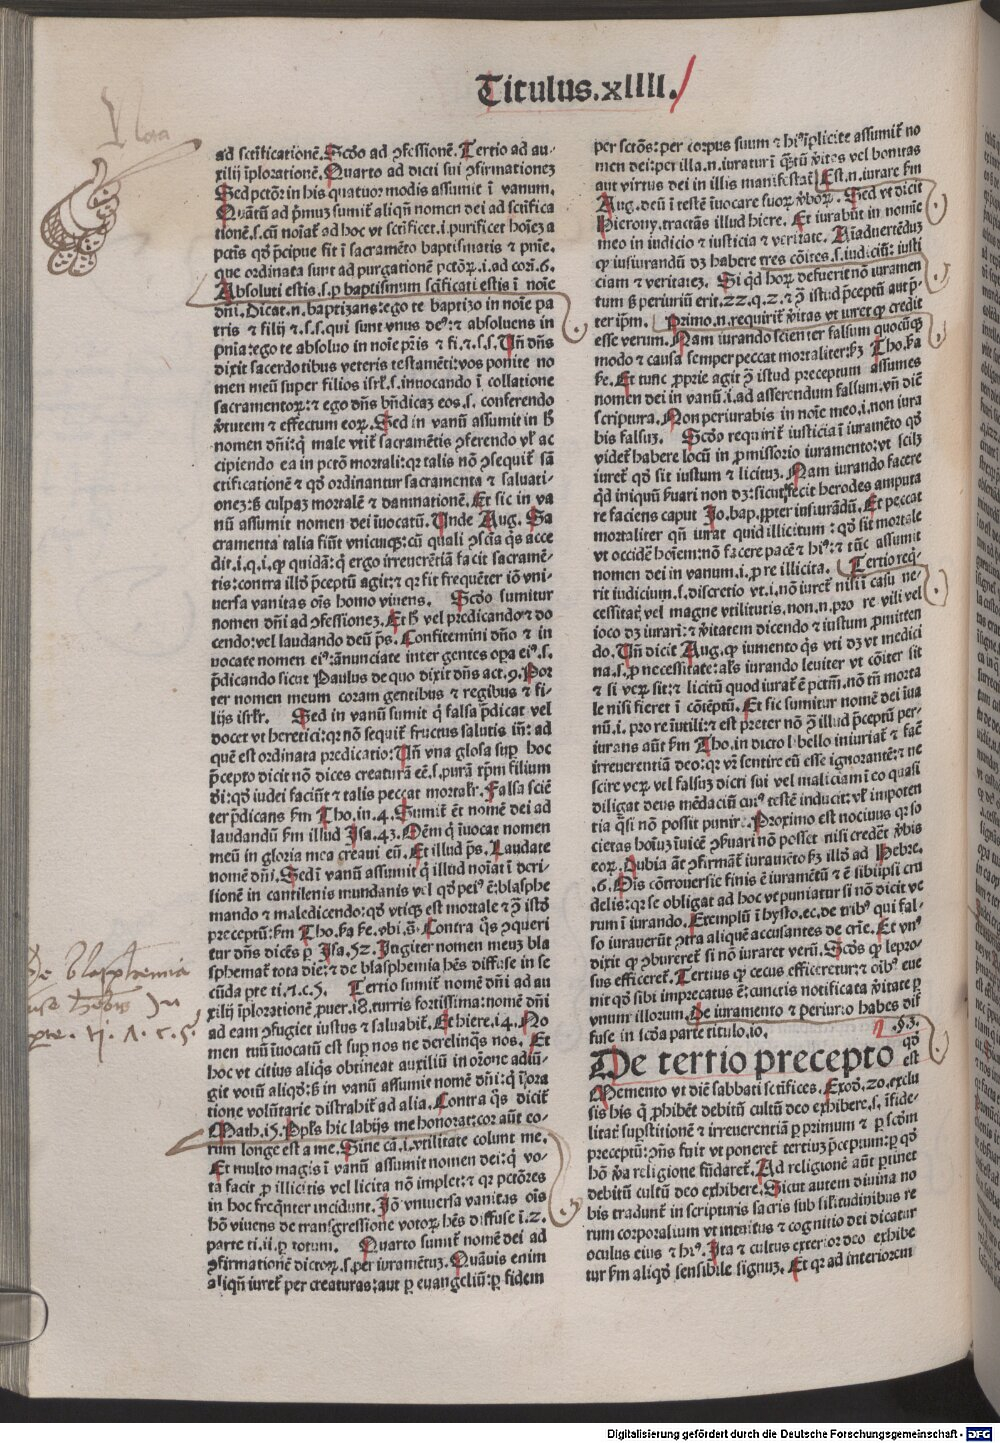 Titulus.xllll.
ad sctificationē. Scḋo ad ꝯfessionē. Tertio ad au-
xilij īplorationē. Quarto ad dicti sui ꝯfirmationeꝫ
Sed pctōꝛ in his quatuoꝛ modis assumit ī vanum.
Quātū ad pͥmuꝫ sumit̄ aliqñ nomen dei ad sctifica
tionē.s.cū noīat̄ ad hoc vt sctificet.i.purificet hoīeꝫ a
pctīs qḋ p̄cipue fit ī sacramēto baptismatis ⁊ pnīe.
que ordinata sunt ad purgationē pctōꝝ.i.ad coꝛ.6.
Absoluti estis.s.ꝑ baptismum sctificati estis ī noīe
dñi. Dicat.n.baptizans:ego te baptizo in noīe pa
tris ⁊ filij ⁊ s.s.qui sunt vnus deꝰ:⁊ absoluens in
pnīa:ego te absoluo in noīe pr̄is ⁊ fi.⁊.s.s. Uñ dñs
dixit sacerdotibus veteris testamēti:vos ponite no
men meū super filios isrl̄.s.inuocando ī collatione
sacramentoꝝ:⁊ ego dñs bñdicaꝫ eos.s.conferendo
v̄tutem ⁊ effectum eoꝝ. Sed in vanū assumit in h̄
nomen dñi:q̇ male vtit̄ sacramētis ꝯferendo vl̓ ac
cipiendo ea in pctō moꝛtali:qꝛ talis nō ꝯsequit̄ sā
ctificationē ⁊ qḋ oꝛdinantur sacramenta ⁊ saluati-
oneꝫ:ß culpaꝫ moꝛtalē ⁊ damnationē. Et sic in va
nū assumit nomen dei īuocatū. Unde Aug. Sa
cramenta talia fiūt vnicuiqꝫ:cū quali ꝯsciā q̇s acce
dit.i.q.i.ꝙ quidā:q̇ ergo irreuerētiā facit sacramē-
tis:contra illḋ p̄ceptū agit:⁊ qꝛ fit frequēter iō vni-
uersa vanitas oīs homo viuens. Scḋo sumitur
nomen dñi ad ꝯfessioneꝫ. Et ß vel predicando ⁊ do
cendo:vel laudando deū ps̄. Confitemini dño ⁊ in
uocate nomen eiꝰ:ānunciate inter gentes oꝑa eiꝰ.s.
p̄dicando sicut Paulus de quo dixit dñs act.9. Poꝛ
ter nomen meum coꝛam gentibus ⁊ regibus ⁊ fi-
lijs isrl̄r. Sed in vanū sumit q̇ falsa p̄dicat vel
docet vt heretici:qꝛ nō sequit̄ fructus salutis iñ: ad
quē est oꝛdinata predicatio: Uñ vna glosa suꝑ hoc
p̄cepto dicit nō dices creaturā eē.s.purā xp̄m filium
dei:qḋ iudei faciūt ⁊ talis peccat moꝛtalr̄. Falsa sciē
ter p̄dicans ẜm Tho.in.4. Sumit̄ ēt nomē dei ad
laudandū ẜm illud Isa.43. Oēm q̇ īuocat nomen
meū in gloꝛia mea creaui eū. Et illud ps̄. Laudate
nomē dñi. Sed ī vanū assumit q̇ illud noīat ī deri-
sionē in cantilenis mundanis vel qḋ peiꝰ ē:blasphe
mando ⁊ maledicendo:qḋ vtiqꝫ est moꝛtale ⁊ ꝯ̄ istḋ
preceptū:ẜm Tho.ẜa ẜe.vbi.s̄. Contra q̇s ꝯqueri
tur dñs dicēs ꝑ Isa.52. Iugiter nomen meuꝫ bla
sphemat̄ tota die:⁊ de blasphemia hēs diffuse in se
cūda ꝑte ti.7.c.5. Tertio sumit̄ nomē dñi ad au
xilij īploꝛationē.ꝓuer.18.turris foꝛtissima:nomē dñi
ad eam ꝯfugiet iustus ⁊ saluabit̄. Et hiere.i4. No
men tuū īuocatū est suꝑ nos ne derelinq̄s nos. Et
hoc vt citius aliq̇s obtineat auxiliū in oꝛ̄one adiū-
git votū aliqḋ:ß in vanū assumit nomē dñi:q̇ ī oꝛa
tione volūtarie distrahit̄ ad alia. Contra q̇s dicit̄
Math.i5. Ppl̄s hic labijs me honoꝛat:coꝛ aūt eo-
rum longe est a me. Sine cā.i.vtilitate colunt me.
Et multo magis ī vanū assumit nomen dei:q̇ vo-
ta facit ꝓ illicitis vel licita nō implet:⁊ qꝛ pctōres
in hoc freq̄nter incidunt. Iō vniuersa vanitas oīs
hō viuens de transgressione votoꝝ hēs diffuse ī.2.
parte ti.ii.ꝑ totum. Quarto sumit̄ nomē dei ad
ꝯfirmationē dictoꝝ.s.per iuramētuꝫ. Quāuis enim
aliqñ iuret̄ per creaturas:aut ꝑ euangeliū:ꝑ fidem
per sctōs:per coꝛpus suum ⁊ hiꝰ īplicite assumit̄ no
men dei:per illa.n.iuratur ī q̄tū v̄itas vel bonitas
aut virtus dei in illis manifestat̄. Est.n.iurare ẜm
Aug. deū ī testē īuocare suoꝝ v̄boꝝ. Sed vt dicit
Hierony.tractās illud hiere. Et iurabūt in noīne
meo in iudicio ⁊ iusticia ⁊ veritate. Aīaduertēduꝫ
ꝙ iusiurandū dꝫ habere tres cōites.s.iudiciū: iusti
ciam ⁊ veritateꝫ. Si qḋ hoꝝ defuerit nō iuramen
tum ß periuriū erit.22.q.2.⁊ ꝯ̄ istud p̄ceptū aut pͥ-
ter ip̄m. Primo.n.requirit̄ v̄itas vt iuret ꝙ credit
esse verum. Nam iurando scienter falsum quocūqꝫ
modo ⁊ causa semper peccat moꝛtaliter:ẜꝫ Tho.ẜa
ẜe. Et tunc ꝓprie agit ꝯ̄ istud preceptum assumes
nomen dei in vanū.i.ad asserendum falsum.vñ diē
scriptura. Non periurabis in noīe meo.i.non iura
bis falsuꝫ. Scḋo requirit̄ iusticia ī iuramēto qḋ
videt̄ habere locū in ꝓmissoꝛio iuramento:vt scilꝫ
iuret̄ qḋ sit iustum ⁊ licituꝫ. Nam iurando facere
qḋ iniquū ẜuari non dꝫ:sicut fecit herodes amputa
re faciens caput Io.bap.ꝓpter iusiurādū. Et peccat
moꝛtaliter qñ iurat quid illicitum : qḋ sit moꝛtale
vt occidē hoīem:nō facere pacē ⁊ hiꝰ:⁊ tūc assumit
nomen dei in vanum.i.ꝓ re illicita. Tertio req̇
rit iudicium.s.discretio vt.i.nō iuret̄ nisi ī casu ne-
cessitat̄ vel magne vtilitatis.non.n.pro re vili vel
ioco dꝫ iurari:⁊ v̄itatem dicendo ⁊ iustum ꝓmitten
do. Uñ dicit Aug.ꝙ iumento q̇s vti dꝫ vt medici
na.s.ꝓ necessitate:als̄ iurando leuiter vt cōiter sit
⁊ si veꝝ sit:⁊ licitū quod iurat̄ ē pctm̄.nō tm̄ moꝛta
le nisi fieret ī cōtēptū. Et sic sumitur nomē dei ī va
nū.i.pro re īutili:⁊ est preter nō ꝯ̄ illud p̄ceptū per-
iurans aūt ẜm Tho.in dicto l bello iniuriat̄ ⁊ facit̄
irreuerentiā deo:qꝛ vr̄ sentire eū esse ignorantē:⁊ ne
scire veꝝ vel falsuꝫ dicti sui vel maliciam ī eo quasi
diligat deus mēdaciū cuiꝰ testē inducit:vl̓ impoten
tia q̄si nō possit punire. Proximo est nociuus qꝛ so
cietas hoīuꝫ īuicē ꝯẜuari nō posset nisi credet̄ v̄bis
eoꝝ. Dubia āt ꝯfirmāt̄ iuramēto ẜꝫ illḋ ad Hebre.
.6. Oīs cōtrouersie finis ē iuramētū ⁊ ē sibiipsi cru
delis:qꝛ se obligat ad hoc vt puniatur si nō dicit ve
rum ī iurando. Exemplū ī hysto.ec.de tribꝰ qui fal-
so iurauerūt ꝯtra aliquē accusantes de crīe. Et vnꝰ
dixit ꝙ ꝯbureret̄ si nō iuraret verū. Scḋs ꝙ lepro-
sus efficeret̄. Tertius ꝙ cecus efficeretur:⁊ oībꝰ eue
nit qḋ sibi imprecatus ē:cunctis notificata v̄itate ꝑ
vnum illoꝛum. De iuramento ⁊ periurio habes dif
fuse in scḋa parte titulo.io. .§.3.
De tertio precepto qḋ est
Memento vt diē sabbati sctifices. Exoḋ.20.exclu
sis his q̇ ꝓhibēt debitū cultū deo exhibere.s.īfide-
litat̄ suꝑstitionē ⁊ irreuerentiā ꝑ primum ⁊ ꝑ scḋm
preceptū:ꝯñs fuit vt poneret̄ tertiuꝫ p̄ceptum:ꝑ qḋ
hō v̄a religione fūdaret̄. Ad religionē aūt ꝑtinet
debitū cultū deo exhibere. Sicut autem diuina no
bis tradunt̄ in scripturis sacris sub silitudinibus re
rum coꝛpoꝛalium vt intuitus ⁊ cognitio dei dicatur
oculus eius ⁊ hiꝰ. Ita ⁊ cultus exterioꝛ deo exhibe
tur ẜm aliqḋ sensibile signuꝫ. Et qꝛ ad interioꝛem
De blasphemia
pte. ij. 7. c. 5.
Digitalisierung gefördert durch die Deutsche Forschungsgemeinschaft - DFG